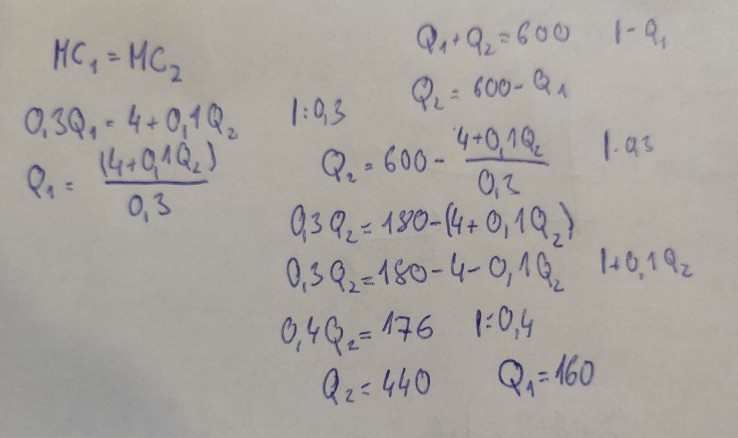 MC₁ = MC₂
0,3Q₁ = 4 + 0,1Q₂ |:0,3
Q₁ = (4+0,1Q₂) / 0,3
Q₁ + Q₂ = 600 |- Q₁
Q₂ = 600 - Q₁
Q₂ = 600 - 4+0,1Q₂ / 0,3 |· 0,3
0,3Q₂ = 180 - (4 + 0,1Q₂)
0,3Q₂ = 180 - 4 - 0,1Q₂ |+0,1Q₂
0,4Q₂ = 176 |:0,4
Q₂ = 440 Q₁ = 160